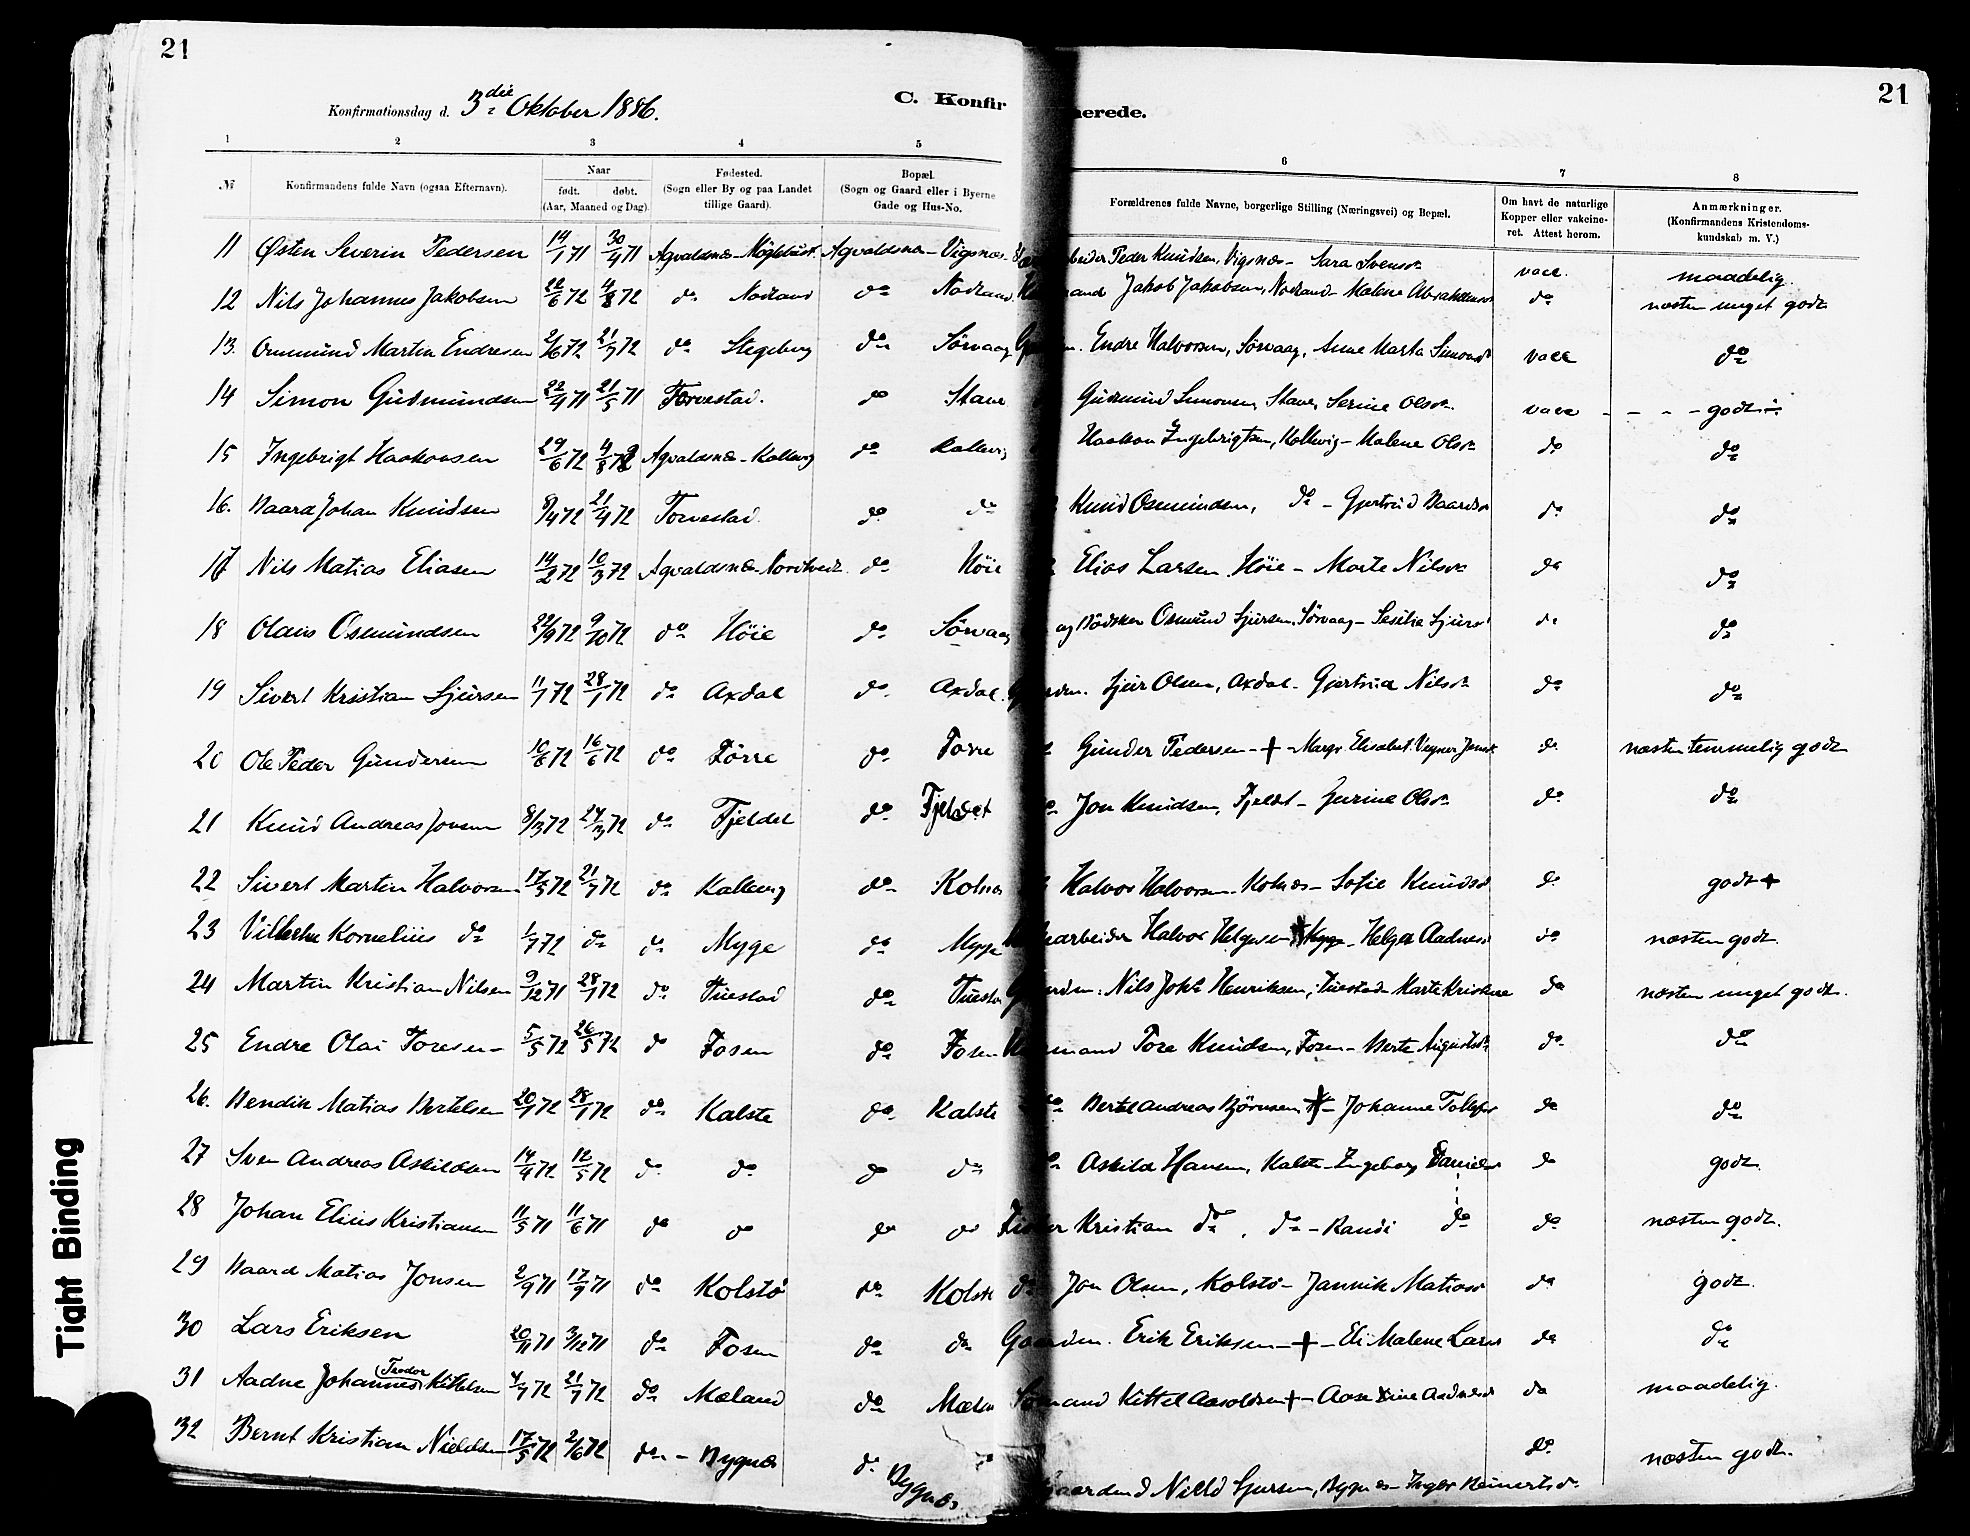 21
21
Konfirmationsdag d. 3die Oktober 1886.
C. Konfir
erede.
1 2 3 4 5 6 7 8
№ Konfirmandens fulde Navn (ogsaa Efternavn). Naar født. døbt. (Aar, Maaned og Dag). Fødested. (Sogn eller By og paa Landet tillige Gaard). Bopæl. (Sogn og Gaard eller i Byerne Gade og Hus-No. Forældrenes fulde Navne, borgerlige Stilling (Næringsvei) og Bopæl. Om havt de naturlige Kopper eller vakcineret. Attest herom. Anmærkninger. (Konfirmandens Kristendomskundskab m. V.)
11 Østen Severin Pedersen 14/1 71 30/4 71 Agvaldsnæs - Agvaldsnæs - Vigsnæs Peder Knudsen, Vigsnæs - Sara Svensdr vacc. maadelig.
12 Nils Johannes Jakobsen 22/6 72 4/8 72 do Nodland do Nodland Jakob Jakobsen, Nodland - Malene Abrahamsdr do næsten meget godt
13. Onmund Martin Endresen 2/6 72 21/7 72 do Stegeberg do Sørvaag Endre Halvorsen, Sørvaag, Anne Marta Simonsdr vacc do
14 Simon Gudmundsen 22/4 71 21/5 71 Torvestad. do Stave Gudmund Simonsen, Stave, Serine Olsdr vacc - - - - godt
15 Ingebrigt Haakonsen 29/6 72 4/8 72 Agvaldsnæs - Kallevig do Kallevig Haakon Ingebrigtsen, Kallevig - Malene Olsdr do do
16. Baard Johan Knudsen 8/4 72 21/4 72 Torvestad. do do Knud Osmundsen, do - Gjertrud Baardsdr do do
17 Nils Matias Eliasen 14/2 72 10/3 72 Agvaldsnæs - do Høie Elias Larsen Høie - Marte Nilsdr do do
18 Olaus Osmundsen 22/9 72 9/10 72 do Høie do Sørvaag og Bødsker Osmund Sjursen, Sørvaag - Sesilie Sjursdr do do
19 Sivert Kristian Sjursen 11/1 72 28/1 72 do Axdal do Axdal. Sjur Olsen, Axdal - Gjertrud Nilsdr do do
20 Ole Peder Gundersen 10/6 72 16/6 72 do Førre do Førre Gunder Pedersen - + - Margr. Elisabet do næsten temmelig godt
21 Knud Andreas Jonsen 8/3 72 24/3 72 do Fjeldet do Fjeldet do Jon Knudsen, Fjeldet - Gurine Olsdr do do
22 Sivert Martin Halvorsen 17/5 72 21/7 72 do Kallevig do Kolnes Halvor Halvorsen Kolnæs - Sofie Knudsdr do godt +
23 Vilhelm Kornelius do 1/7 72 do do Myge do Myge arbeider Halvor Helgesen Myge - Helga Aadnesdr do næsten godt.
24 Martin Kristian Nilsen 9/12 71 28/1 72 do Tuestad do Tuestad Nils Joh. Henriksen, Tuestad Marte Kristine do næsten meget godt.
25 Endre Olai Toresen - 5/5 72 26/5 72 do Fosen do Fosen Tore Knudsen, Fosen - Berte Augustsdr do do
26. Bendik Matias Bertelsen 20/1 72 28/1 72 do Kalstø do Kalstø do Bertel Andreas Bjørnsen + - Johanne Tollefsdr do do
27 Sven Andreas Askildsen 14/4 72 12/5 72 do do do do do Askild Hansen, Kalstø - Ingeborg Danielsdr do godt
28 Johan Elius Kristiansen 11/5 71 11/6 71 do do do do Fisker Kristian do, do - Randi do do næsten godt.
29 Baard Matias Jonsen 2/9 71 17/9 71 do Kolstø do Kolstø do Jon Olsen, Kolstø - Jannik Matiasdr do godt.
30 Lars Eriksen 20/11 71 3/12 71 do Fosen do do Gaardm. Erik Eriksen - + - Eli Malene Larsdr do do
31 Aadne Johannes (Teodor) Kittelsen 4/7 72 21/7 72 do Mæland do Mæland Kittel Aasoldsen + - Aase Line Aadnesdr do maadelig.
32 Bernt Kristian Nielsen 17/5 72 2/6 72 do - Bygnes do Bygnes. Gaardmd Niels Sjursen, Bygnes - Inger Reinertsd. do næsten godt.
Tight Binding